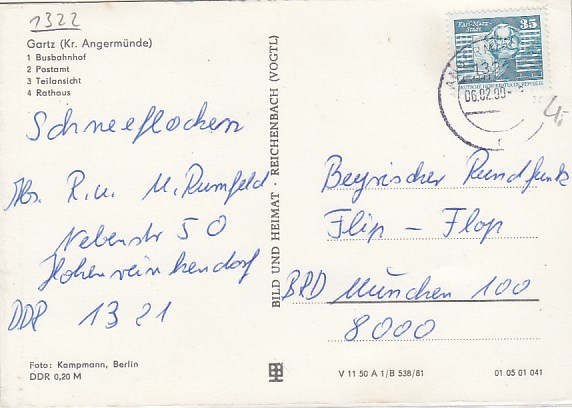 1322
Gartz (Kr. Angermünde)
1 Busbahnhof
2 Postamt
3 Teilansicht
4 Rathaus
Schneeflocken
Abs. R. u. M. Rumfeld
Nebenstr 50
Hohenreinkendorf
DDR 1321
Foto: Kampmann, Berlin
DDR 0,20 M
BILD UND HEIMAT · REICHENBACH (VOGTL)
Karl-Marx-Stadt 35
DEUTSCHE DEMOKRATISCHE REPUBLIK
1322
06.02.90
4,-
Beyrischer Rundfunk
Flip – Flop
BRD München 100
8000
V 11 50 A 1/B 538/81
01 05 01 041